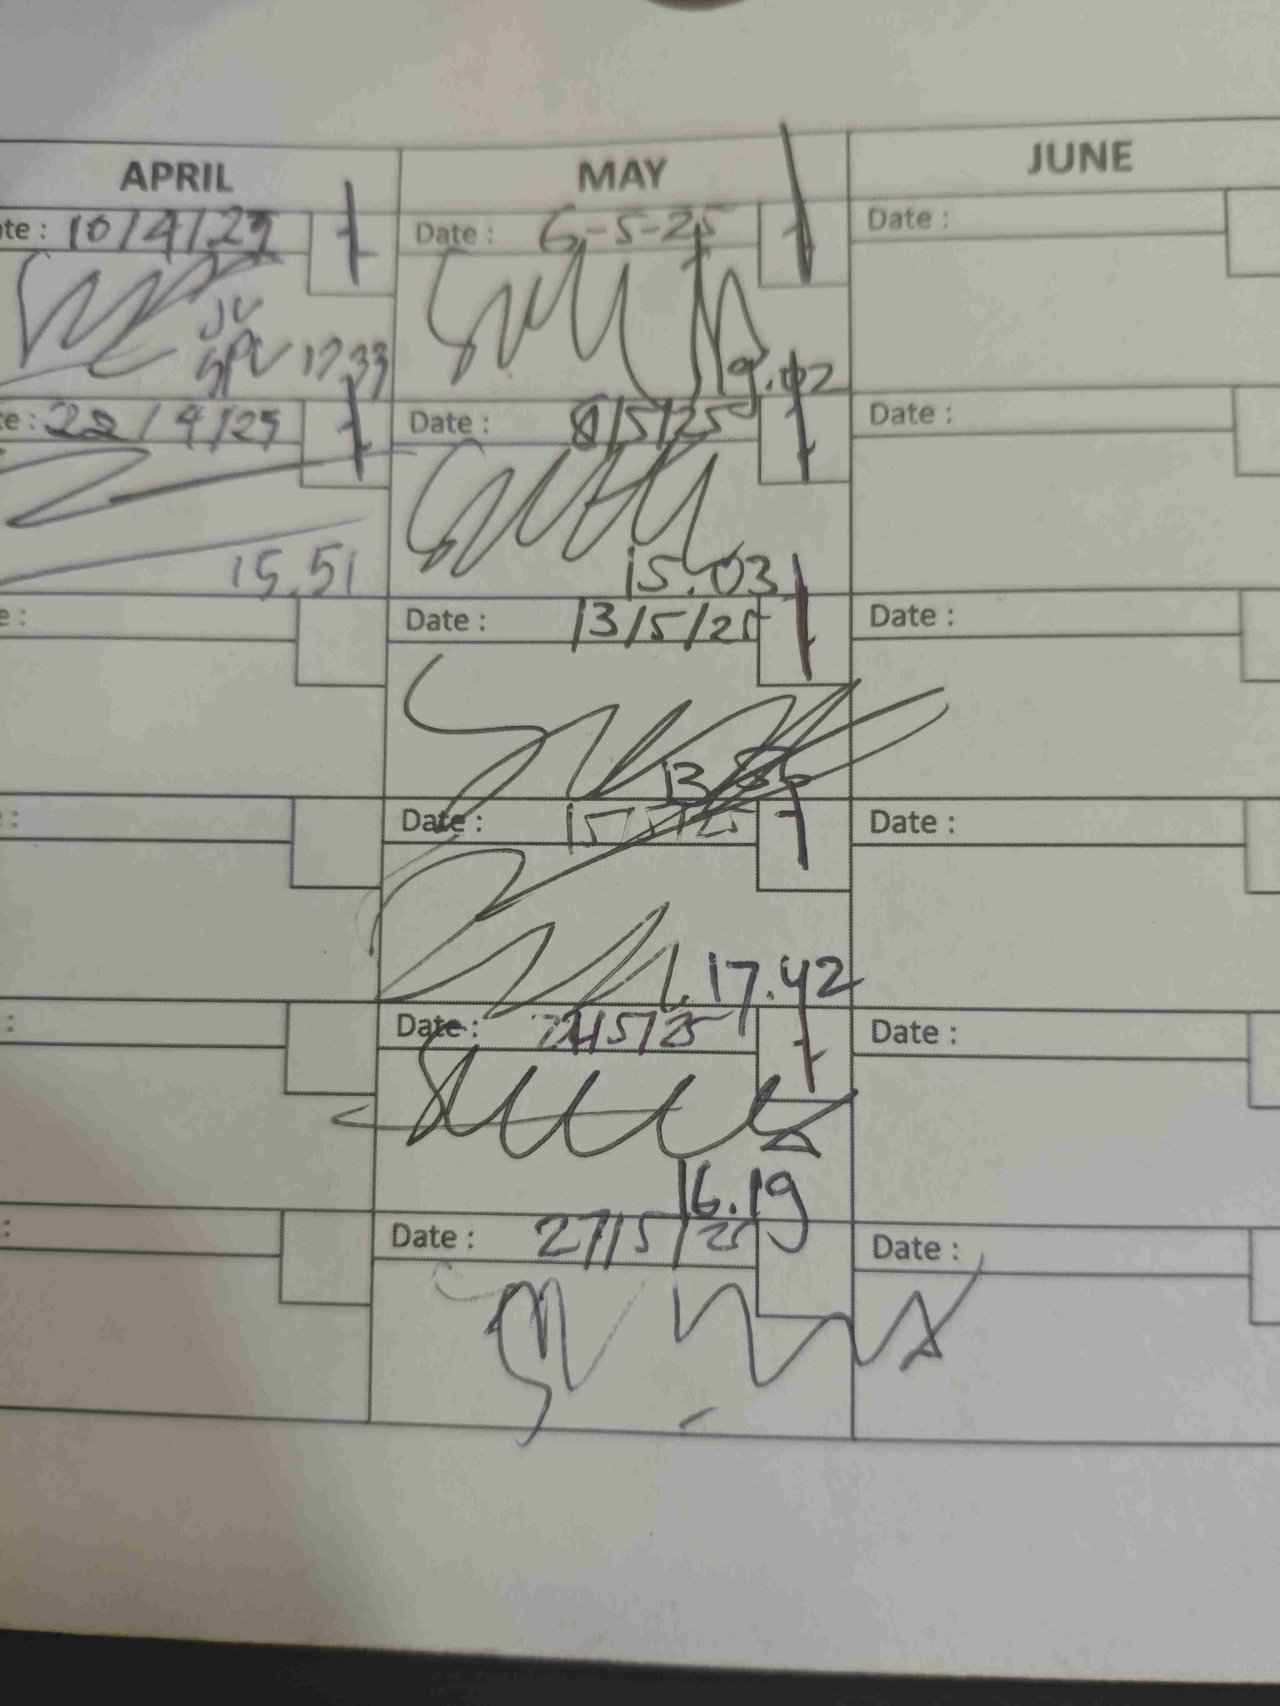 APRIL
te: 10/4/25
JU
SPV 17.33
e: 22/4/25
15.51
e:
:
:
:
MAY
Date: 6-5-25
19.02
Date: 8/5/25
15.03
Date: 13/5/25
13
Date: 15/5/25
17.42
Date: 5/25
16.19
Date: 27/5/25
JUNE
Date:
Date:
Date:
Date:
Date:
Date: